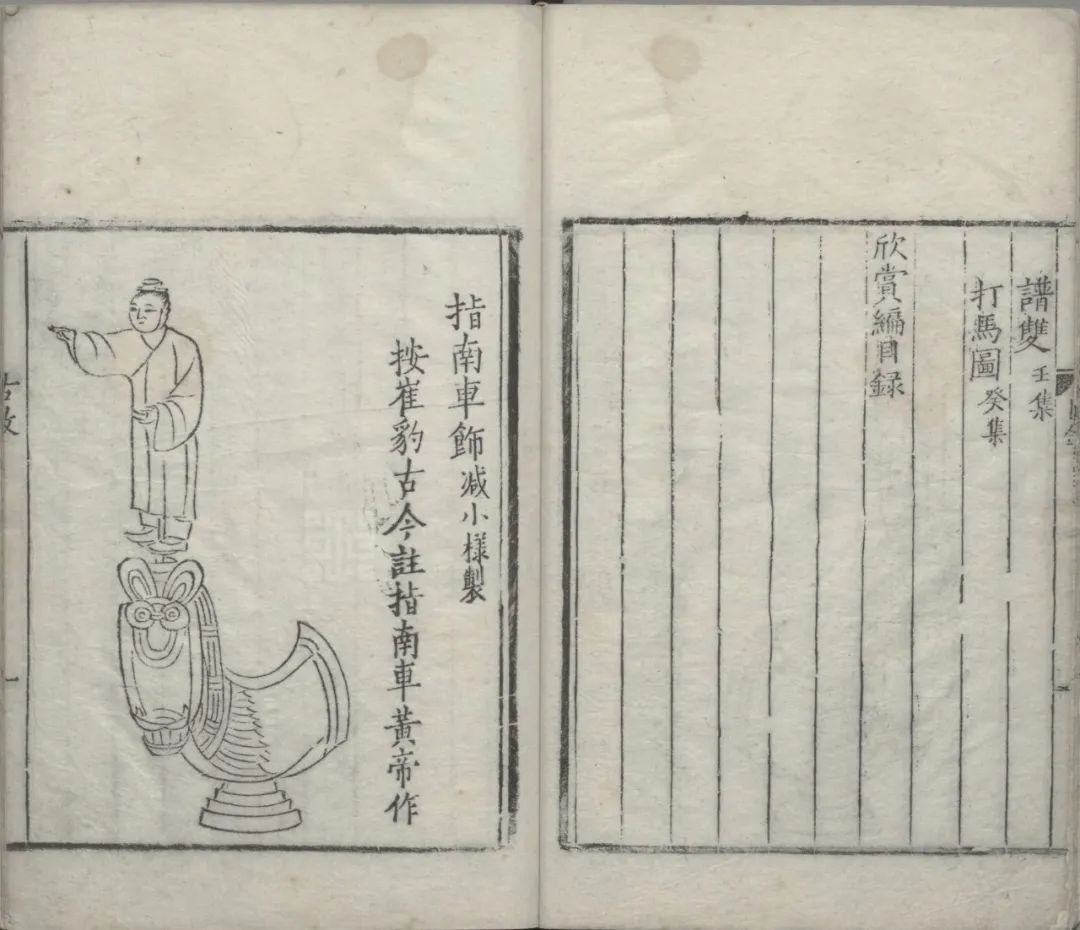 譜雙 壬集
打馬圖 癸集
欣賞編目録
指南車飾 减小樣製
按崔豹古今註指南車黃帝作
一